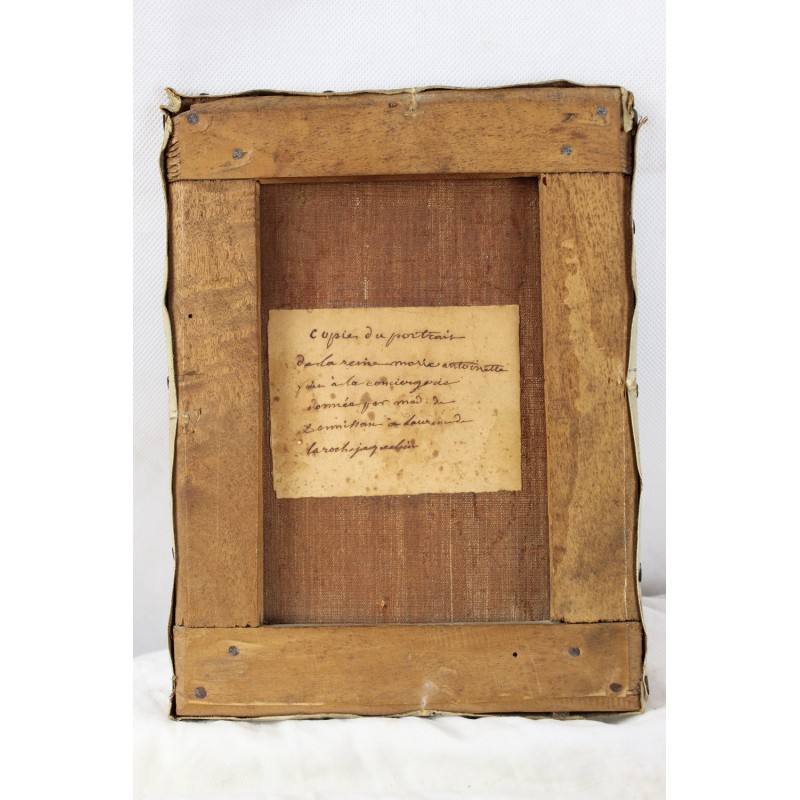 Copie du portrait
de la reine marie antoinette
à la conciergerie
donnée par mad: de
à Laurence de
larochejaquelein